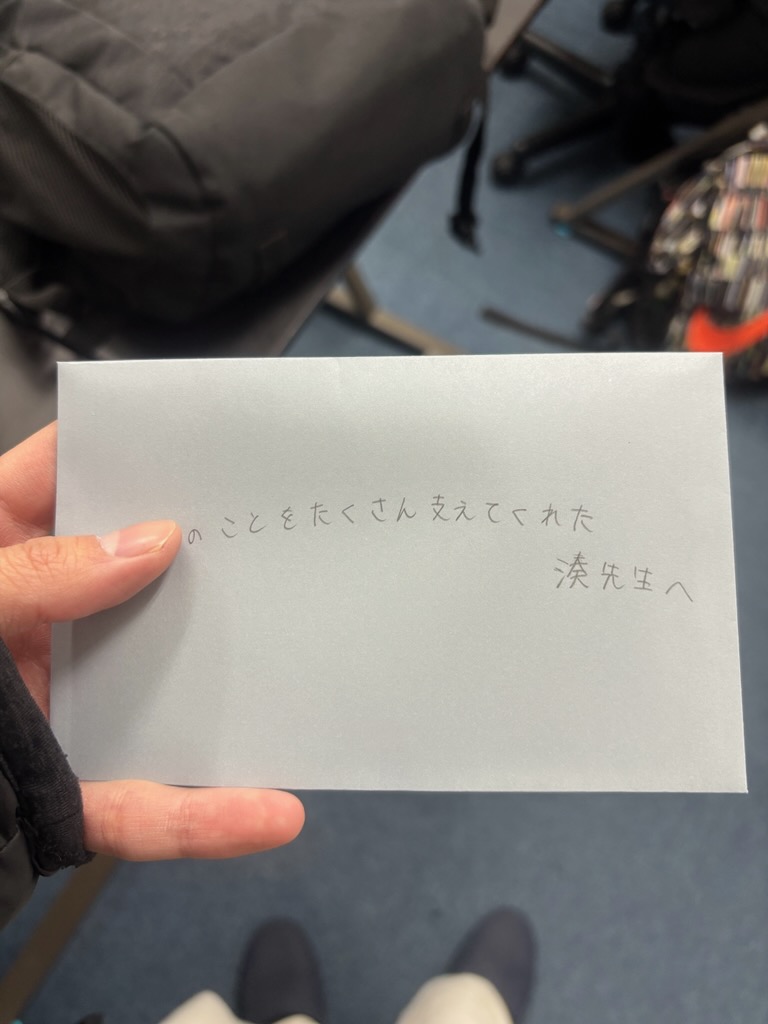 のことをたくさん支えてくれた
湊先生へ